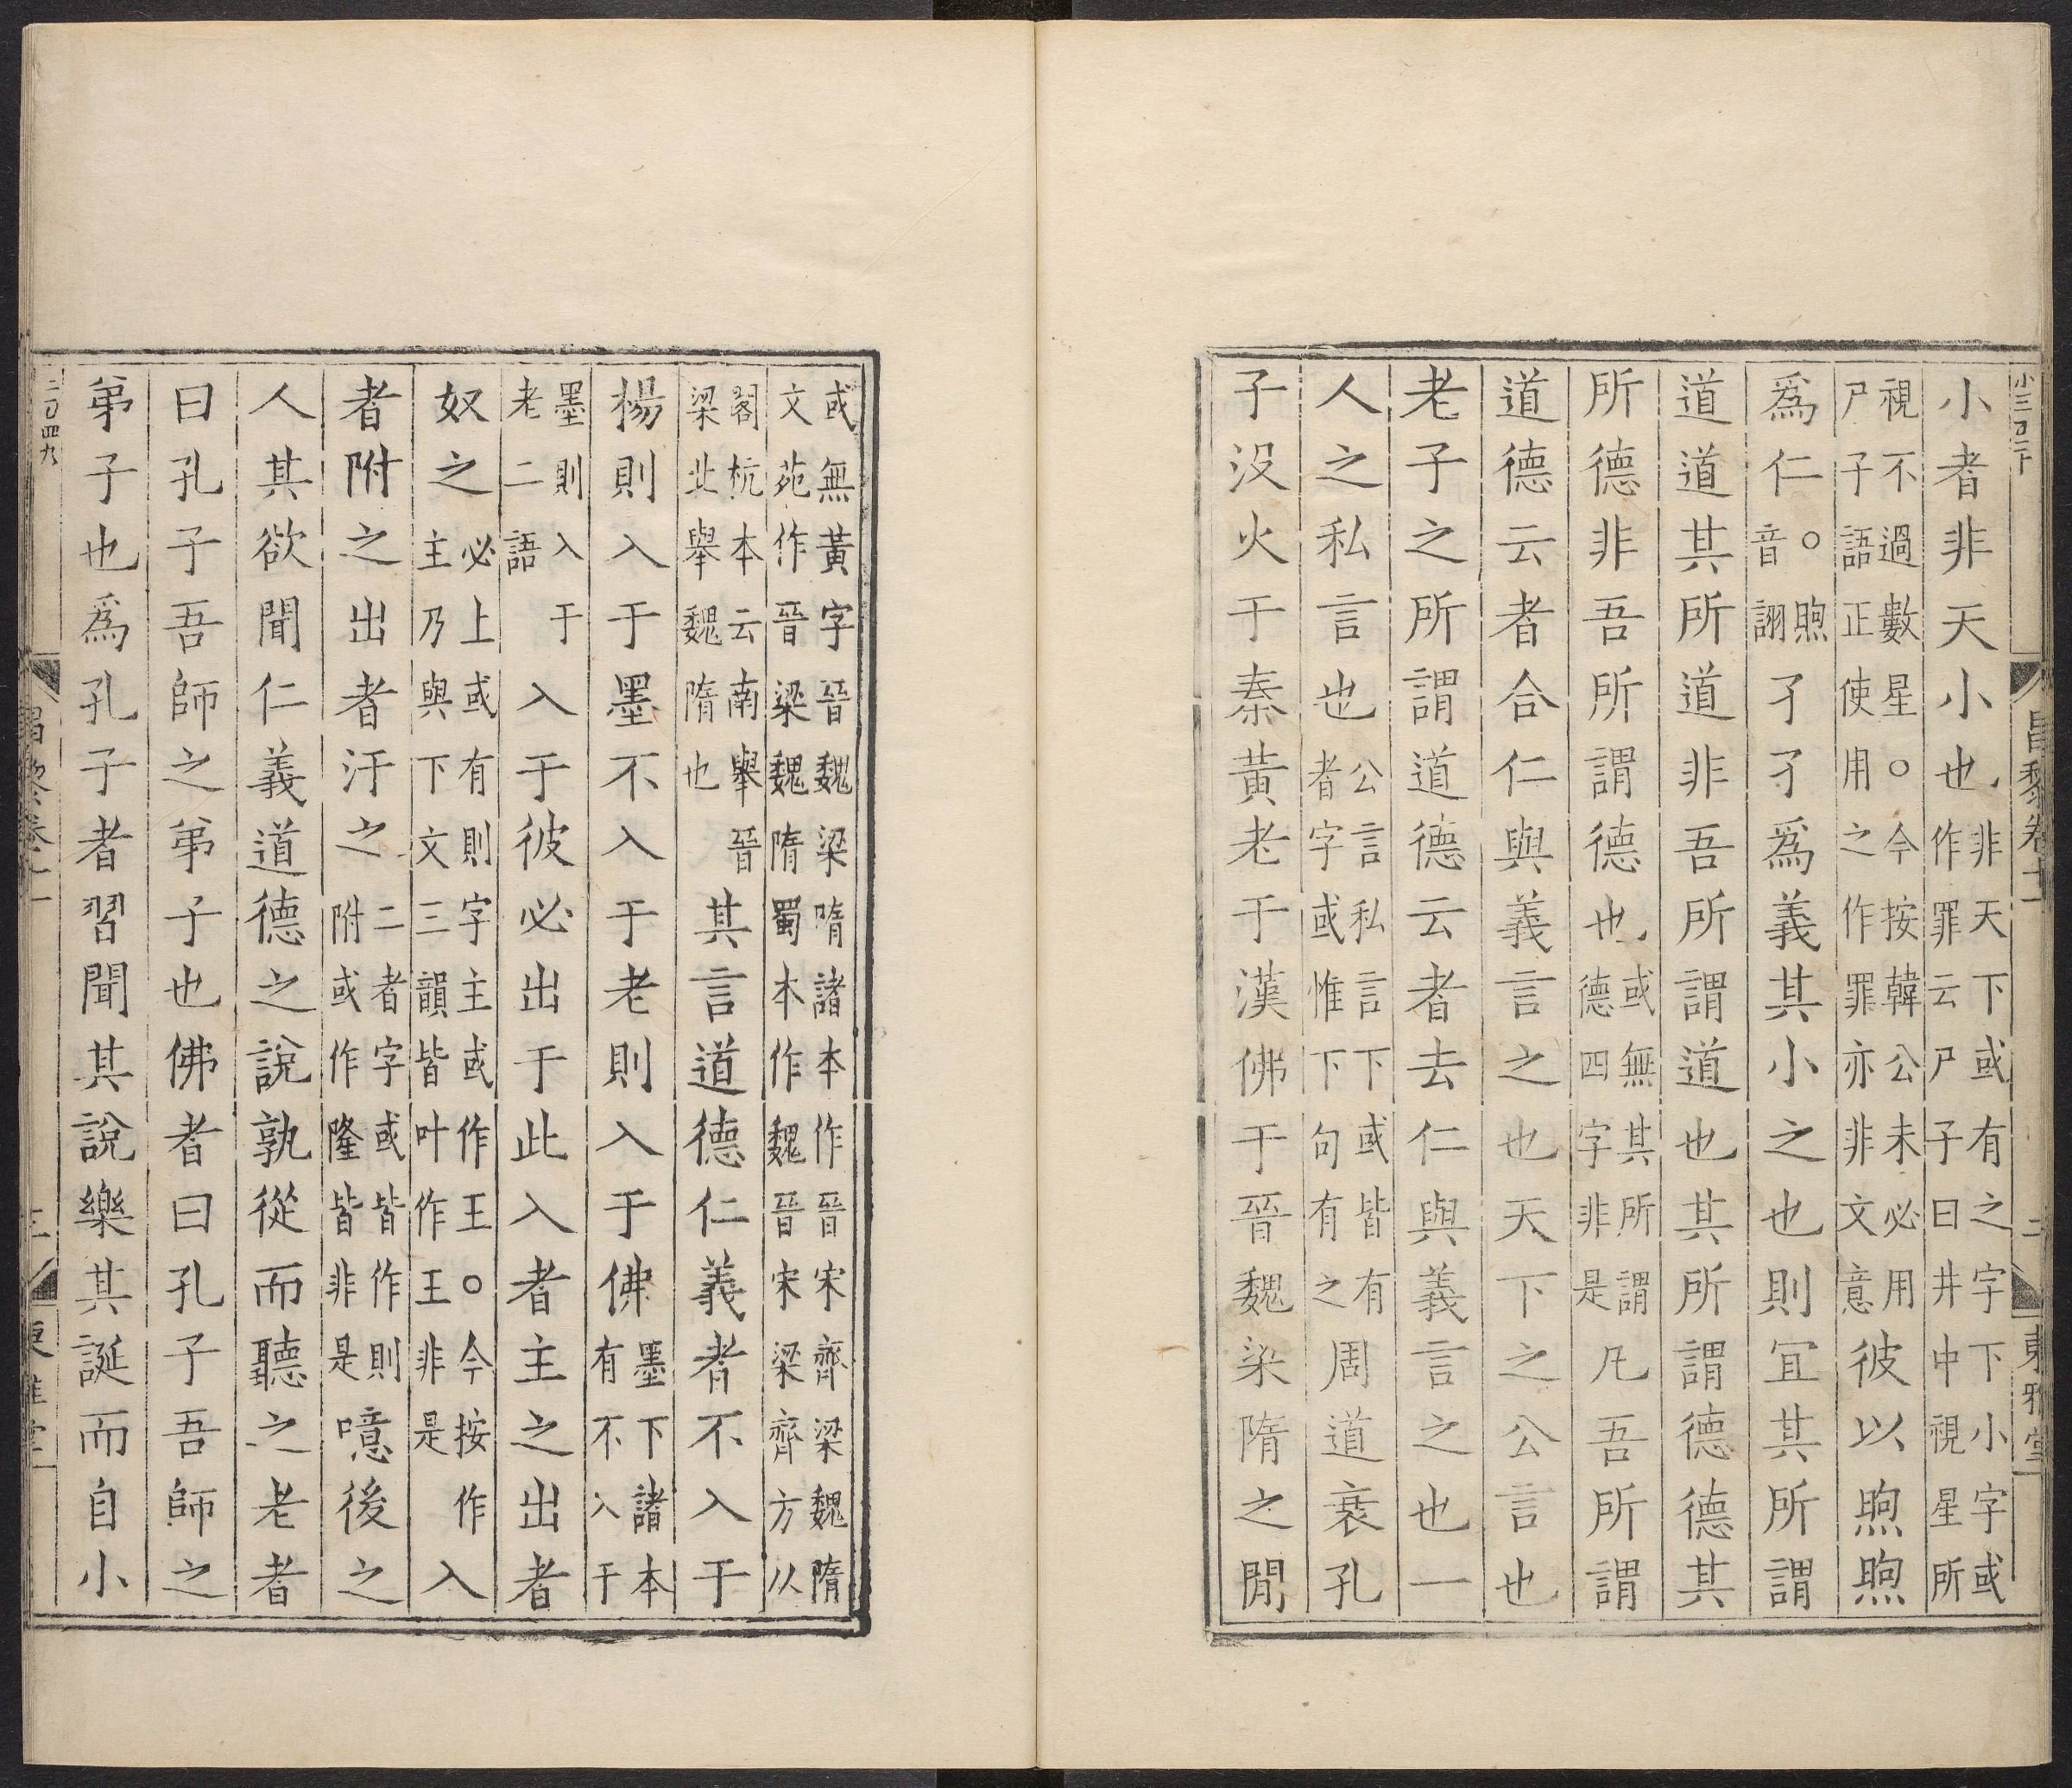 小三百二十
昌黎卷十一 二 東雅堂
小者非天小也非天下或有之字下小字或作罪云尸子曰井中視星所
視不過數星○今按韓公未必用尸子語正使用之作罪亦非文意彼以煦煦
爲仁○煦音詡孑孑爲義其小之也則宜其所謂
道道其所道非吾所謂道也其所謂德德其
所德非吾所謂德也或無其所謂德四字非是凡吾所謂
道德云者合仁與義言之也天下之公言也
老子之所謂道德云者去仁與義言之也一
人之私言也公言私言下或皆有者字或惟下句有之周道衰孔
子没火于秦黃老于漢佛于晉魏梁隋之閒
或無黃字晉魏梁隋諸本作晉宋齊梁魏隋文苑作晉梁魏隋蜀本作魏晉宋梁齊方从
閣杭本云南舉晉梁北舉魏隋也其言道德仁義者不入于
楊則入于墨不入于老則入于佛墨下諸本有不入于
墨則入于老二語入于彼必出于此入者主之出者
奴之必上或有則字主或作王○今按作主乃與下文三韻皆叶作王非是入
者附之出者汙之二者字或皆作則附或作隆皆非是噫後之
人其欲聞仁義道德之說孰從而聽之老者
曰孔子吾師之弟子也佛者曰孔子吾師之
弟子也爲孔子者習聞其說樂其誕而自小
二百四九
昌黎卷十一 三 東雅堂